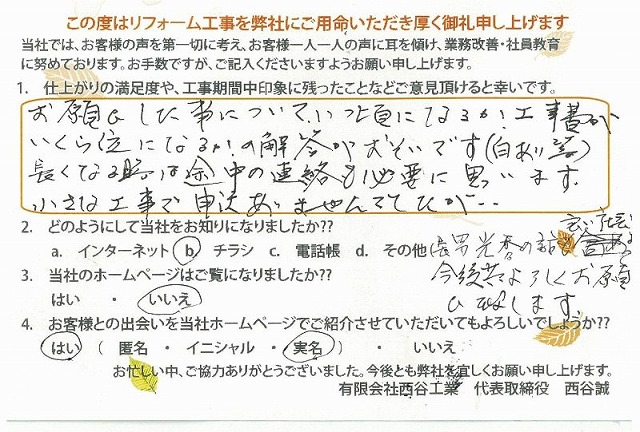 この度はリフォーム工事を弊社にご用命いただき厚く御礼申し上げます
当社では、お客様の声を第一切に考え、お客様一人一人の声に耳を傾け、業務改善・社員教育
に努めております。お手数ですが、ご記入くださいますようお願い申し上げます。
1. 仕上がりの満足度や、工事期間中印象に残ったことなどご意見頂けると幸いです。
お願いした事について、いつ頃になるか、工事費が
いくら位になるかの解答がおそいです(白あり等)
長くなる時は途中の連絡も必要に思います。
小さな工事で申訳ありませんでしたが…
2. どのようにして当社をお知りになりましたか??
a. インターネット b. チラシ c. 電話帳 d. その他(長男光秀の話
3. 当社のホームページはご覧になりましたか??
はい ・ いいえ
今後共よろしくお願
い致します。
4. お客様との出会いを当社ホームページでご紹介させていただいてもよろしいでしょうか??
はい ( 匿名 ・ イニシャル ・ 実名 ) ・ いいえ
お忙しい中、ご協力ありがとうございました。今後とも弊社を宜しくお願い申し上げます。
有限会社西谷工業 代表取締役 西谷誠